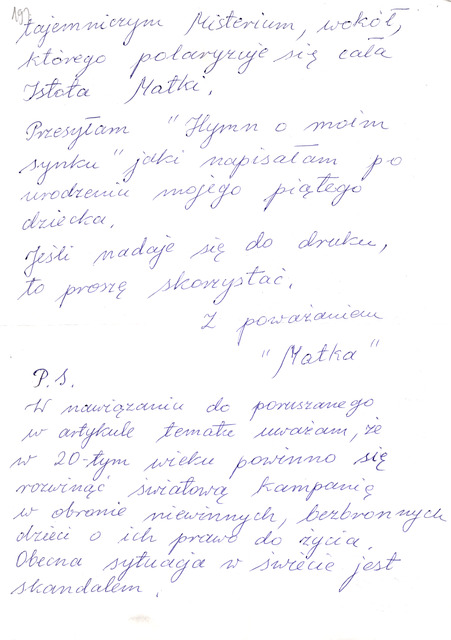 197
tajemniczym Misterium, wokół,
którego polaryzuje się cała
Istota Matki.
Przesyłam "Hymn o moim
synku" jaki napisałam po
urodzeniu mojego piątego
dziecka.
Jeśli nadaje się do druku,
to proszę skorzystać.
Z poważaniem
"Matka"
P.S.
W nawiązaniu do poruszanego
w artykule tematu uważam, że
w 20-tym wieku powinno się
rozwinąć światową kampanię
w obronie niewinnych, bezbronnych
dzieci o ich prawo do życia.
Obecna sytuacja w świecie jest
skandalem.